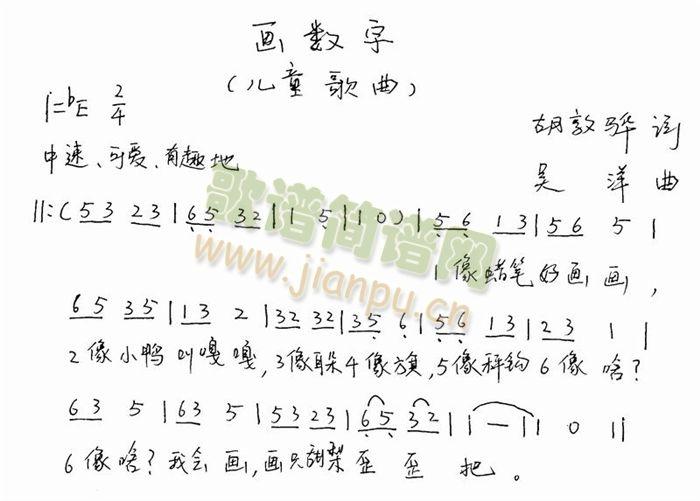 画数字
(儿童歌曲)
1=♭E 2/4
胡敦骅 词
中速、可爱、有趣地
吴 洋 曲
||:(53 23|65 32|1 5|10)|56 13|56 5|
1像蜡笔好画画,
65 35|13 2|32 32|35 6|56 13|23 1|
2像小鸭叫嘎嘎,3像耳朵4像旗,5像秤钩6像啥?
63 5|63 5|53 23|65 32|1-|1 0||
6像啥?我会画,画只甜梨歪歪把。
歌谱简谱网
www.jianpu.cn